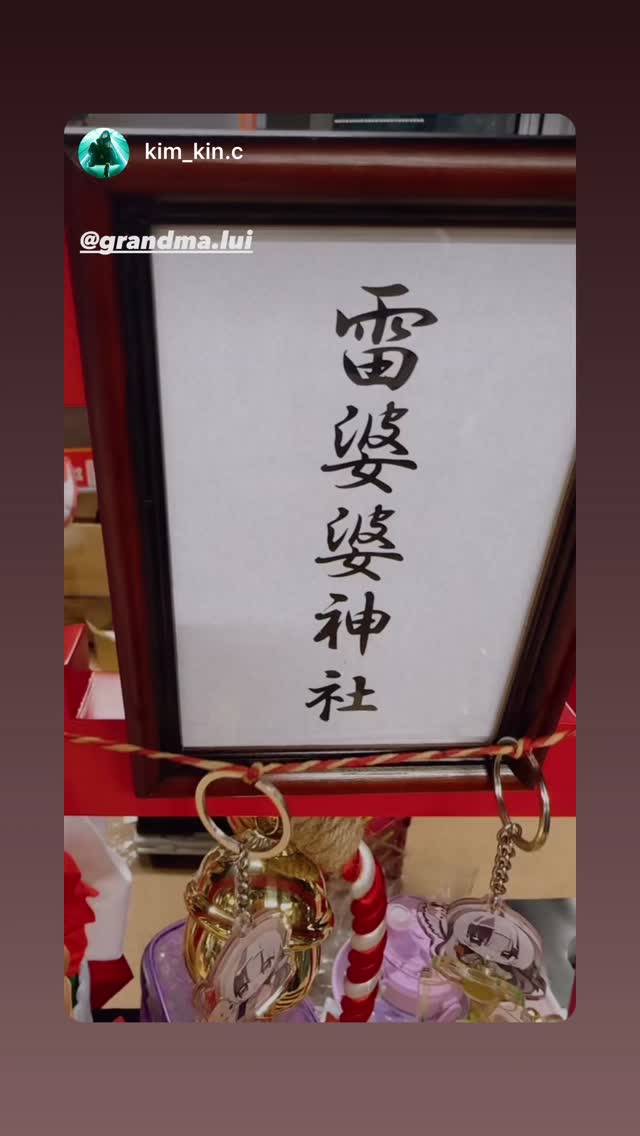 kim_kin.c
@grandma.lui
雷婆婆神社